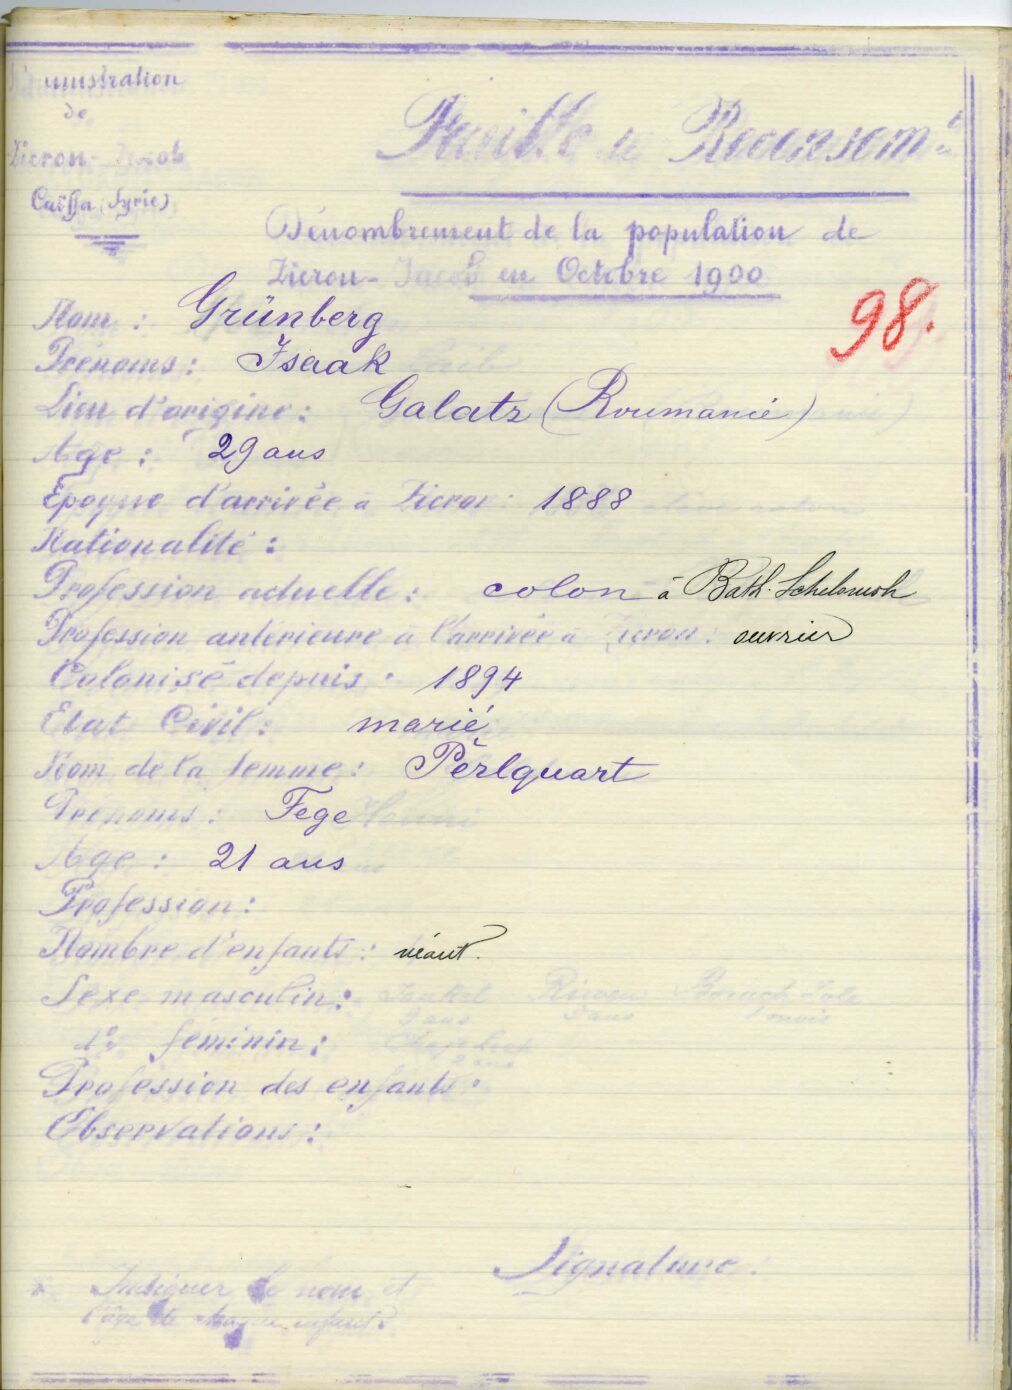 Administration
de
Zicron-Jacob
Caïffa (Syrie)
Feuille de Recensemt
Dénombrement de la population de
Zicron-Jacob en Octobre 1900
98.
Nom : Grünberg
Prénoms : Isaak
Lieu d'origine : Galatz (Roumanie)
Age : 29 ans
Epoque d'arrivée à Zicron : 1888
Nationalité :
Profession actuelle : colon à Bath. Schelomoh
Profession antérieure à l'arrivée à Zicron : ouvrier
Colonisé depuis : 1894
Etat Civil : marié
Nom de la femme : Perlquart
Prénoms : Fege
Age : 21 ans
Profession :
Nombre d'enfants : néant.
Sexe masculin :
do féminin :
Profession des enfants :
Observations :
Signature :
Indiquer le nom et
l'âge de chaque enfant.